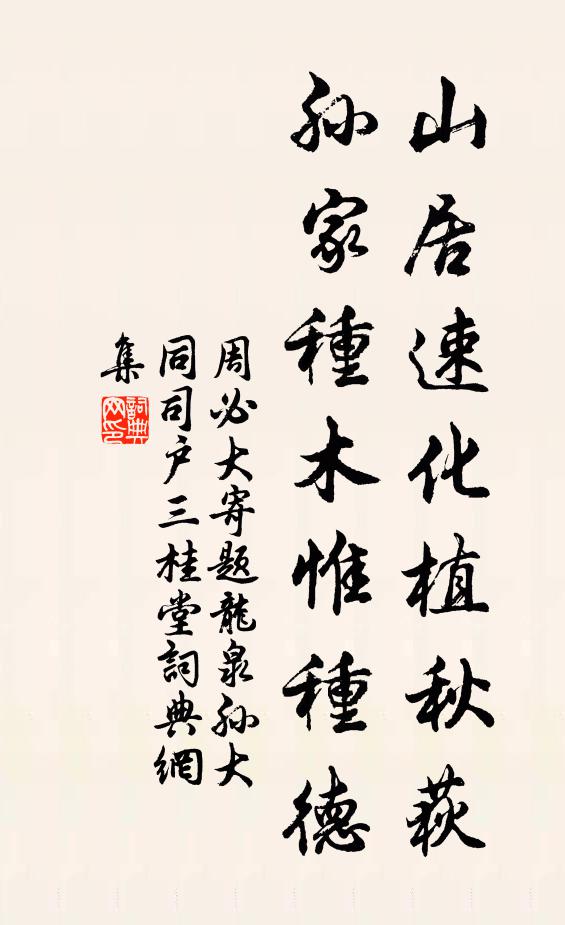 山居速化植秋萩
孫家種木惟種德
周必大寄題龍泉孫大
同司户三桂堂詞典網
集
詞典
网印